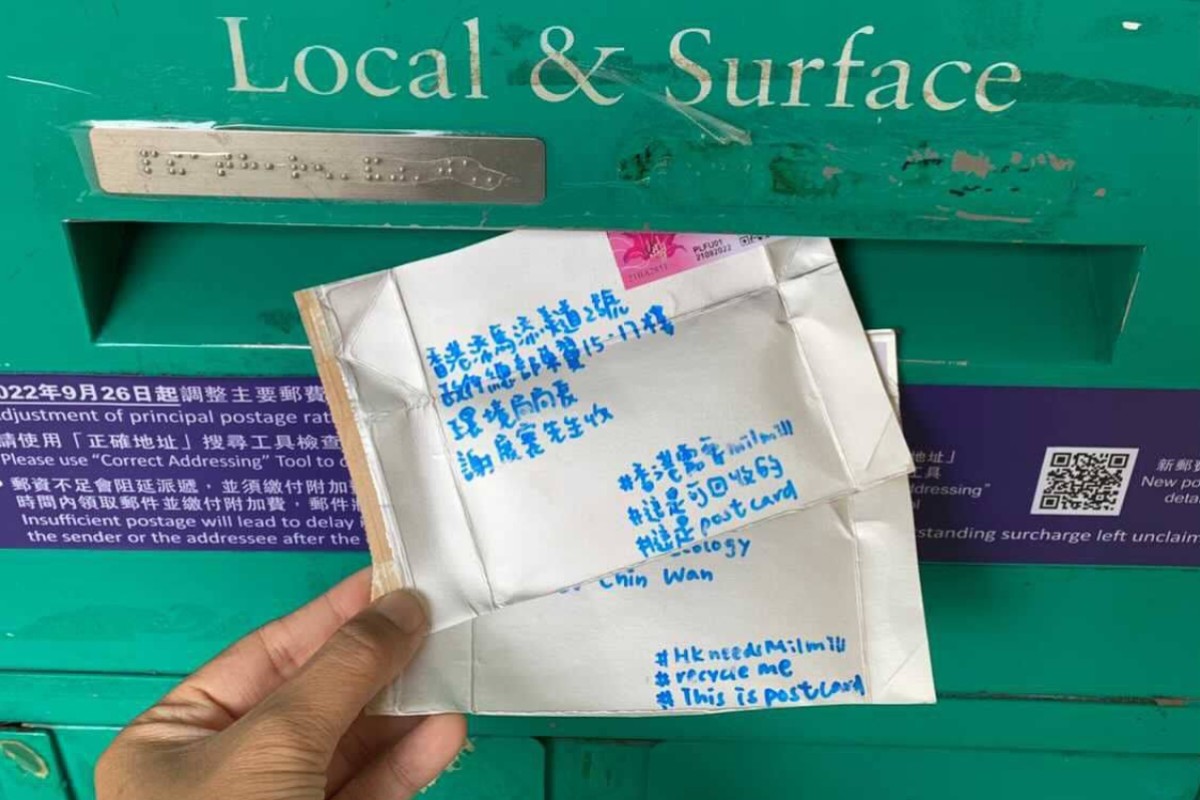 Local & Surface
PLFU01
香港添馬添美道2號
政府總部東翼15-17樓
環境局局長
謝展寰先生收
#香港需要milmill
#這是可回收的
#這是postcard
ology
Chin Wan
#HKneedsMilmill
#recycle me
#This is postcard
022年9月26日起調整主要郵費
djustment of principal postage rat
請使用「正確地址」搜尋工具檢查
Please use "Correct Addressing" Tool to
• 郵資不足會阻延派遞，並須繳付附加
時間內領取郵件並繳付附加費，郵件
Insufficient postage will lead to delay
the sender or the addressee after the
地址」
工具
dressing"
新郵費
New po
deta
standing surcharge left unclaim